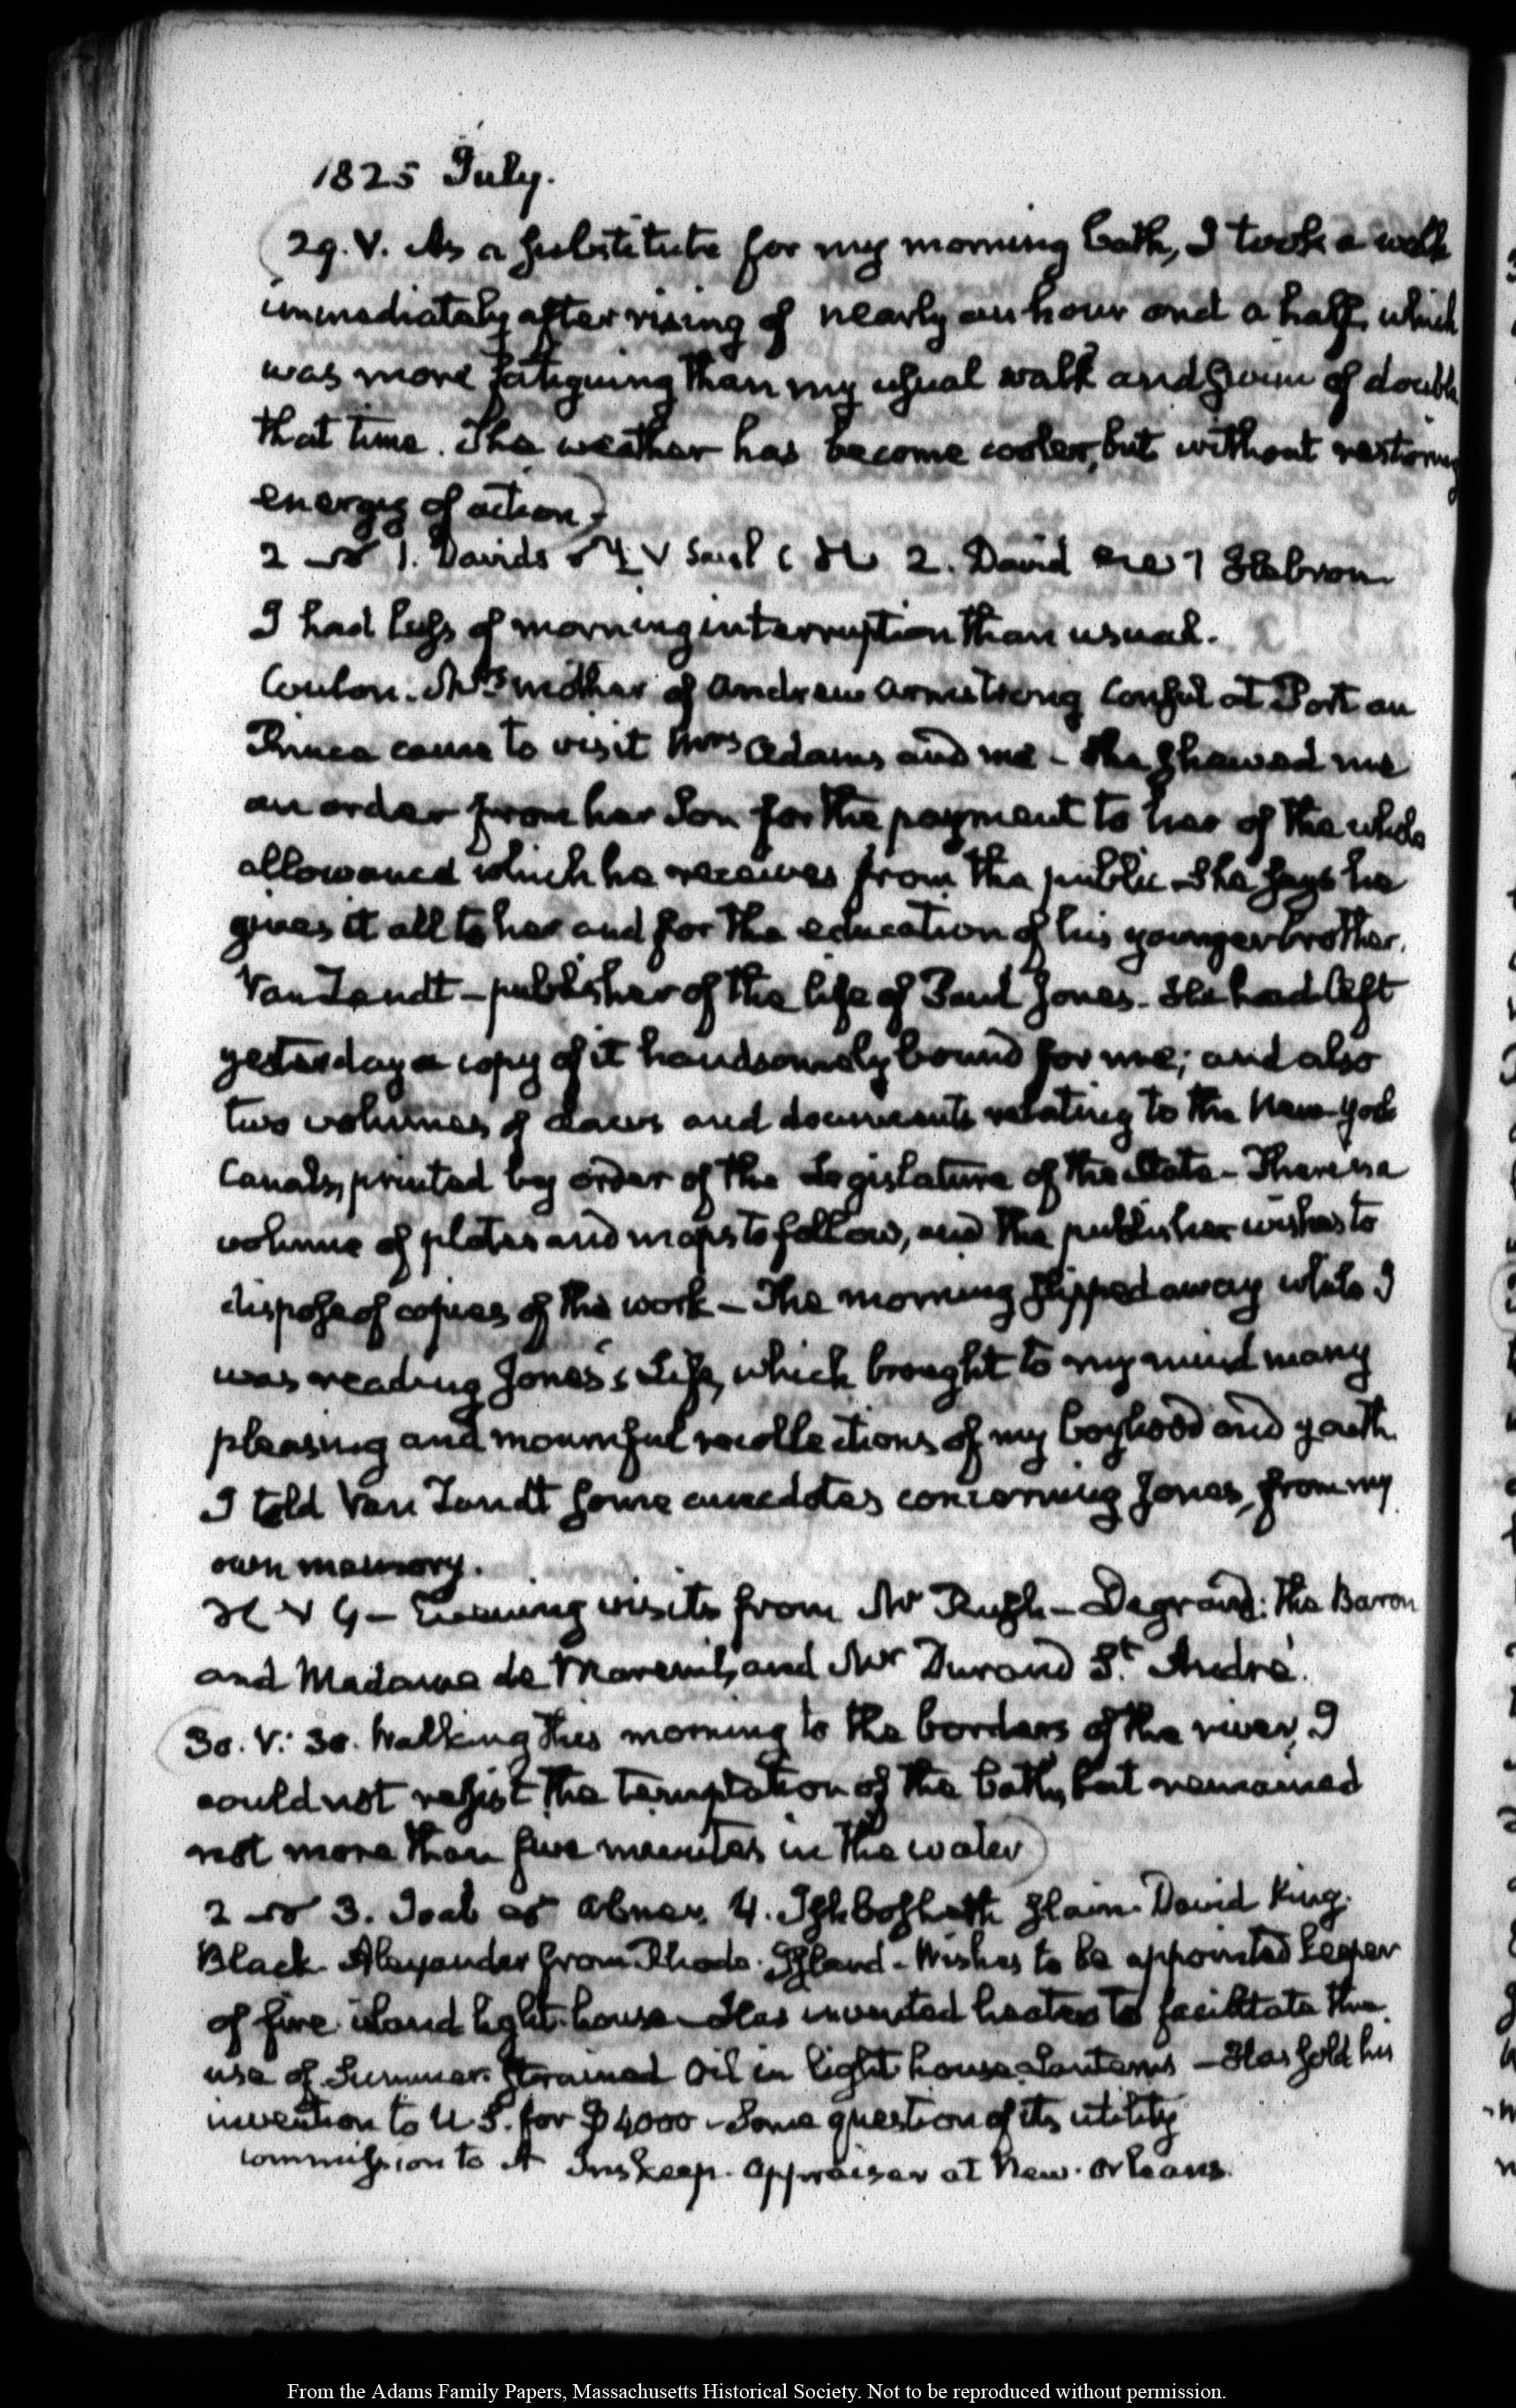 1825 July.
29. V. As a substitute for my morning bath, I took a walk
immediately after rising of nearly an hour and a half, which
was more fatiguing than my usual walk and swim of double
that time. The weather has become cooler, but without restoring
energy of action)
2 1. Davids Saul 2. David Hebron
I had less of morning interruption than usual.
Coulon. Mrs mother of Andrew Armstrong Consul at Port au
Prince came to visit Mrs Adams and me – She shewed me
an order from her Son for the payment to her of the whole
allowance which he receives from the public. She says he
gives it all to her and for the education of his younger brother.
Van Zandt – publisher of the life of Paul Jones – He had left
yesterday a copy of it handsomely bound for me; and also
two volumes of Laws and documents relating to the New-York
Canals, printed by order of the Legislature of the State – There is a
volume of plates and maps to follow, and the publisher wishes to
dispose of copies of the work – The morning slipped away while I
was reading Jones's Life, which brought to my mind many
pleasing and mournful recollections of my boyhood and youth.
I told Van Zandt some anecdotes concerning Jones, from my
own memory.
Evening visits from Mr Rush – Degrand: the Baron
and Madame de Mareuil, and Mr Durand St. André.
30. V: 30. Walking this morning to the borders of the river, I
could not resist the temptation of the bath, but remained
not more than five minutes in the water)
2 3. Joab Abner. 4. Ishbosheth slain. David King.
Black Alexander from Rhode-Island – Wishes to be appointed keeper
of fire island light-house – Has invented heater to facilitate the
use of Summer-strained Oil in light house Lanterns – Has sold his
invention to U.S. for $4000 – Some question of its utility
commission to Inskeep. Appraiser at New-Orleans.
From the Adams Family Papers, Massachusetts Historical Society. Not to be reproduced without permission.